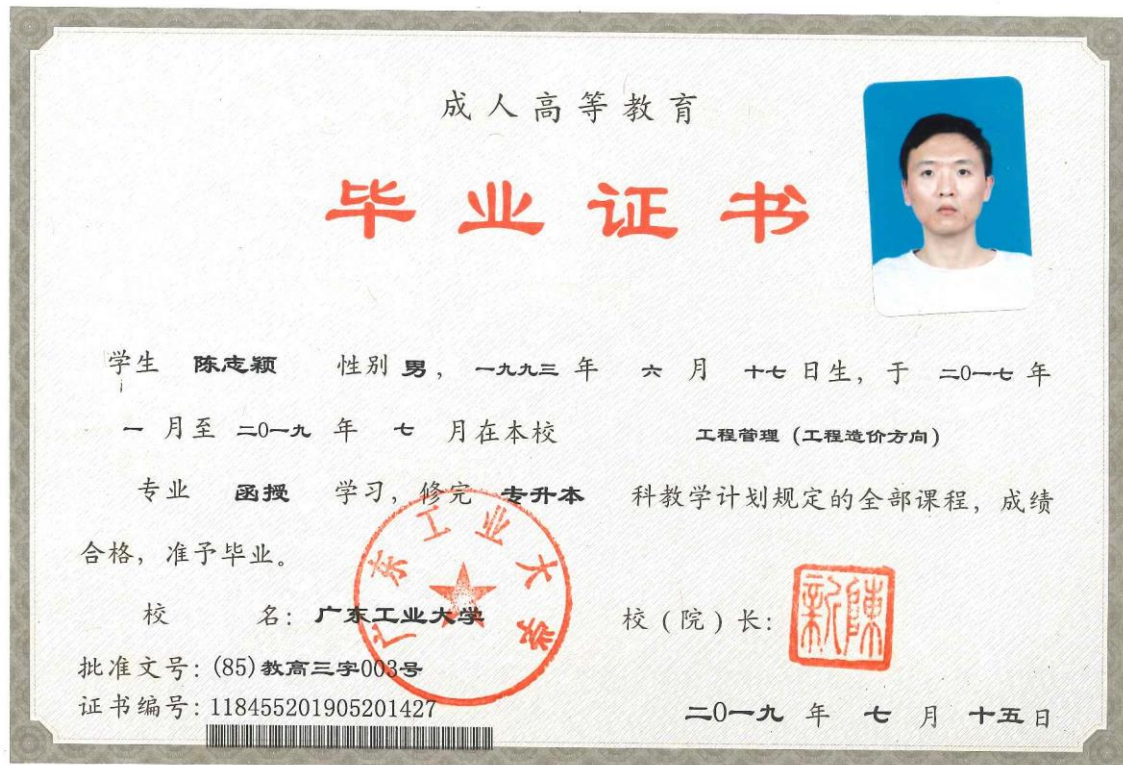 成人高等教育
毕业证书
学生 陈志颖 性别 男, 一九九三 年 六 月 十七 日生, 于 二0一七 年
一 月至 二0一九 年 七 月在本校 工程管理 (工程造价方向)
专业 函授 学习, 修完 专升本 科教学计划规定的全部课程, 成绩
合格, 准予毕业。
校 名: 广东工业大学 校(院)长:
广东工业大学
陳新
批准文号: (85)教高三字003号
证书编号: 118455201905201427
二0一九 年 七 月 十五 日